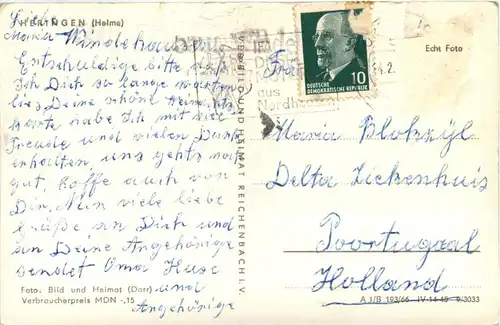 HERINGEN (Helme)
Echt Foto
Lieb
Maria Windehau
Entschuldige bitte
Ich Dich so lange warten
lies, Deine schöne
karte habe ich mit viel
Freude und vielen Dank
erhalten, uns gehts noch
gut, hoffe auch von
Dir. Nun viele liebe
Grüße an Dich und
an Deine Angehörige
sendet Oma Huse
und
Angehörige
Foto: Bild und Heimat (Darr)
Verbraucherpreis MDN -,15
VEB BILD UND HEIMAT REICHENBACH I. V.
aus
Nordhausen
10
DEUTSCHE
DEMOKRATISCHE REPUBLIK
Maria Blokzyl
Delta Ziekenhuis
Poortugaal
Holland
A 1/B 193/66 IV-14-45 9/3033